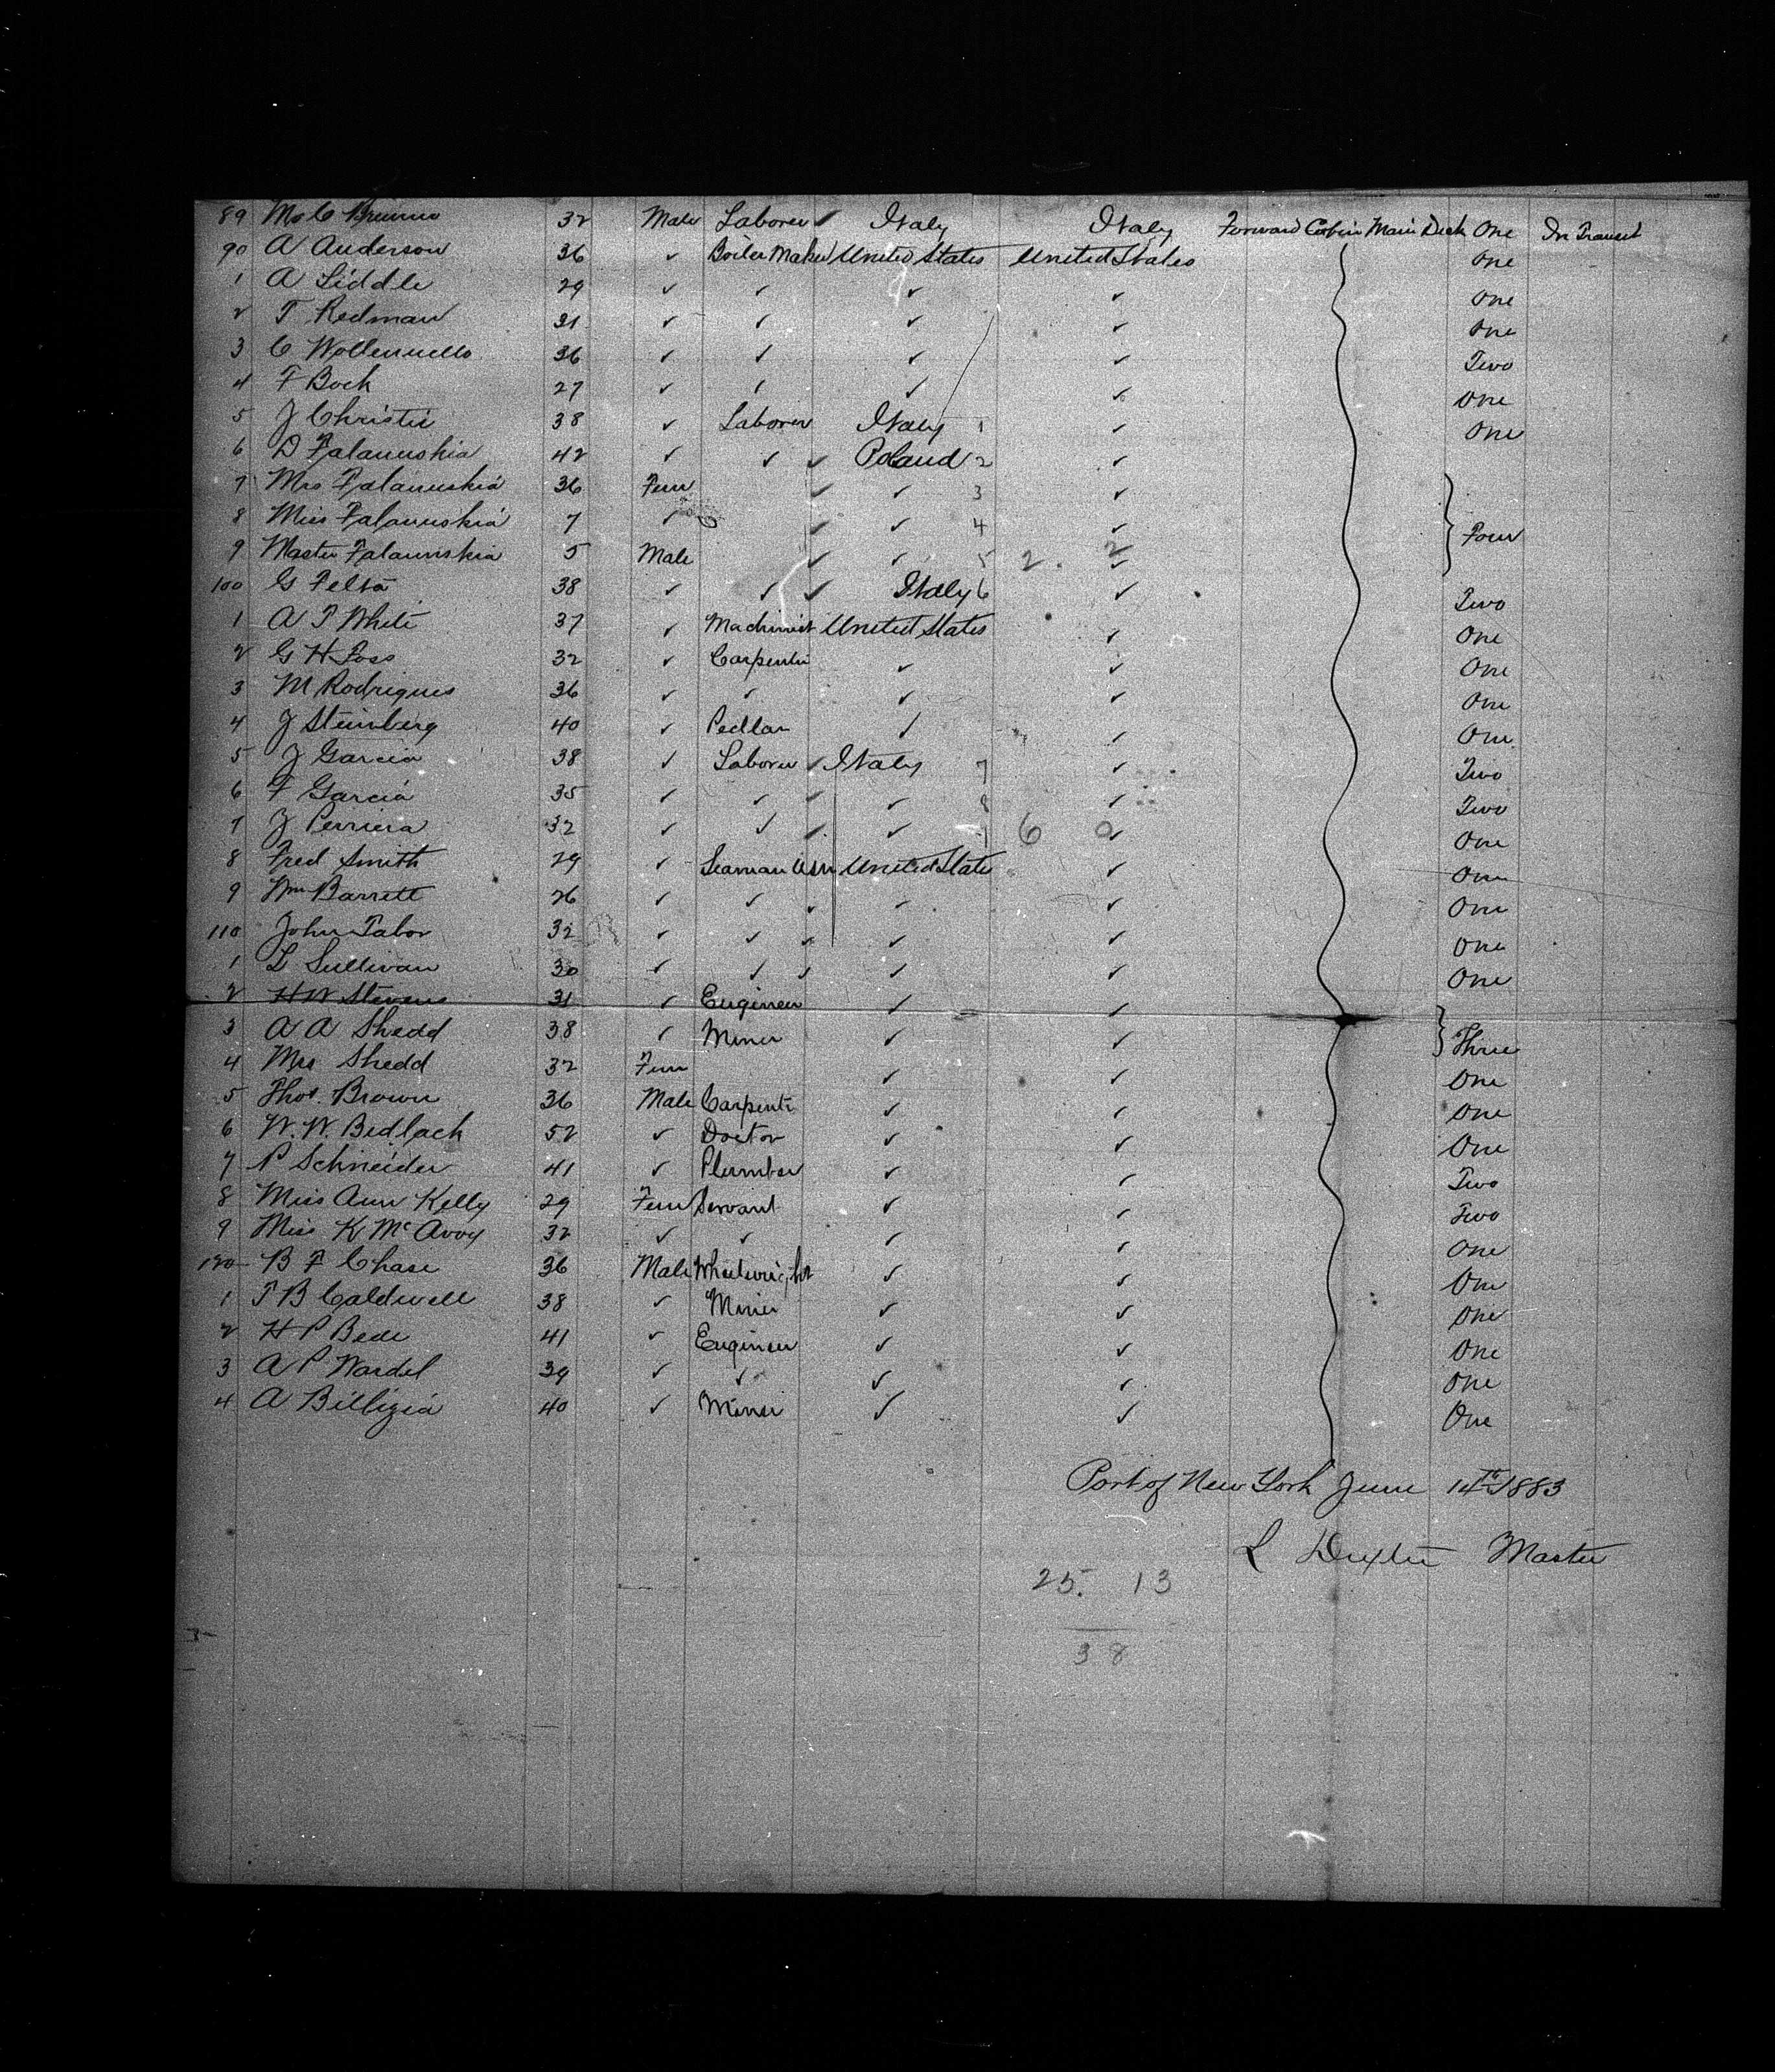 89 32 Male Laborer ✓ Italy Italy Forward Cabin Main Deck One In Transit
90 A Anderson 36 ✓ Boiler Maker United States United States One
1 A Liddle 29 ✓ ✓ ✓ ✓ One
2 T Redman 31 ✓ ✓ ✓ ✓ One
3 C 36 ✓ ✓ ✓ ✓ Two
4 F Bock 27 ✓ ✓ ✓ ✓ One
5 J Christie 38 ✓ Laborer Italy 1 ✓ One
6 D 42 ✓ ✓ ✓ Poland 2 ✓
7 Mrs 36 Fem ✓ ✓ 3 ✓
8 Miss 7 ✓ ✓ ✓ 4 ✓ Four
9 Master 5 Male ✓ ✓ 5 2. 2 ✓
100 G Felta 38 ✓ ✓ ✓ Italy 6 ✓ Two
1 A T White 37 ✓ Machinist United States ✓ One
2 G H Foss 32 ✓ Carpenter ✓ ✓ One
3 M Rodrigues 36 ✓ ✓ ✓ ✓ One
4 J Steinberg 40 ✓ Pedlar ✓ ✓ One
5 J Garcia 38 ✓ Laborer ✓ Italy 7 ✓ Two
6 F Garcia 35 ✓ ✓ ✓ ✓ 8 ✓ Two
7 J Perriera 32 ✓ ✓ ✓ ✓ 9 6 0 ✓ One
8 Fred Smith 29 ✓ Seaman USN United States ✓ One
9 Wm Barrett 26 ✓ ✓ ✓ ✓ ✓ One
110 John Tabor 32 ✓ ✓ ✓ ✓ ✓ One
1 L Sullivan 30 ✓ ✓ ✓ ✓ ✓ One
2 H W Stevens 31 ✓ Engineer ✓ ✓
3 A A Shedd 38 ✓ Miner ✓ ✓ Three
4 Mrs Shedd 32 Fem ✓ ✓ One
5 Thos. Brown 36 Male Carpentr ✓ ✓ One
6 W. W. Bedlack 52 ✓ Doctor ✓ ✓ One
7 P Schneider 41 ✓ Plumber ✓ ✓ Two
8 Miss Ann Kelly 29 Fem Servant ✓ ✓ Two
9 Miss K McAvoy 32 ✓ ✓ ✓ ✓ One
120 B F Chase 36 Male Wheelwright ✓ ✓ One
1 T B Caldwell 38 ✓ Miner ✓ ✓ One
2 H P Bede 41 ✓ Engineer ✓ ✓ One
3 A P Wardel 39 ✓ ✓ ✓ ✓ One
4 A Billigia 40 ✓ Miner ✓ ✓ One
Port of New York June 14th 1883
L Dexter Master
25. 13
38